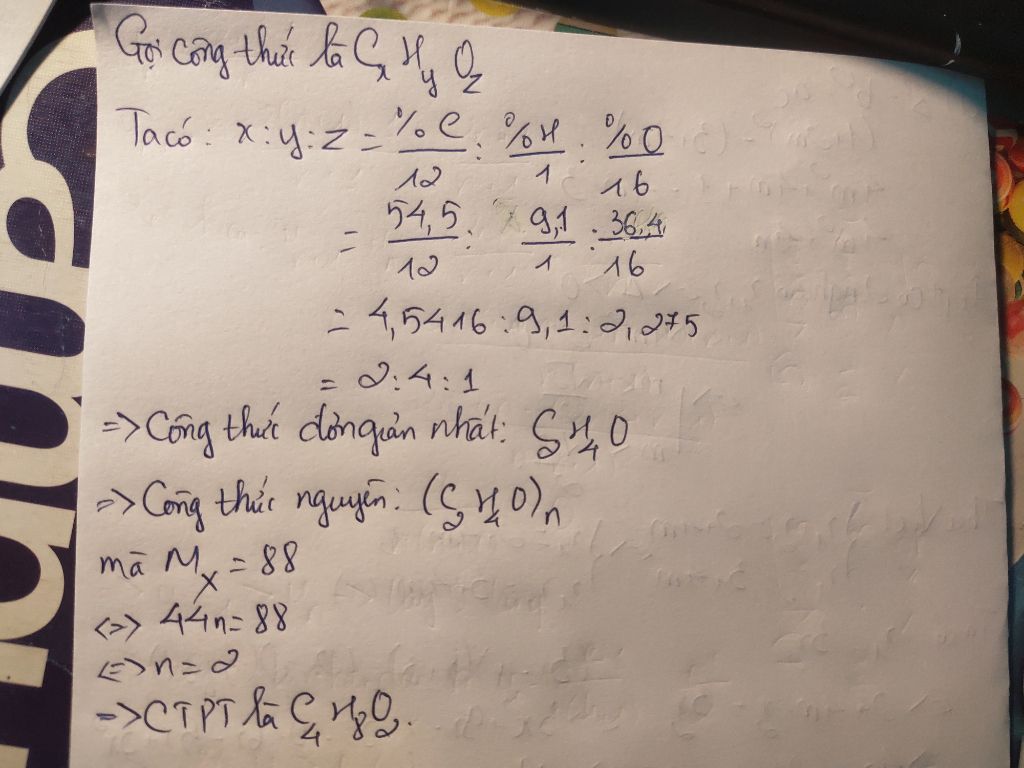 Gọi công thức là CxHyOz
Ta có: x:y:z = %C/12 : %H/1 : %O/16
= 54,5/12 : 9,1/1 : 36,4/16
= 4,5416 : 9,1 : 2,275
= 2:4:1
=> Công thức đơn giản nhất: C2H4O
=> Công thức nguyên: (C2H4O)n
mà Mx = 88
<=> 44n = 88
<=> n = 2
=> CTPT là C4H8O2.